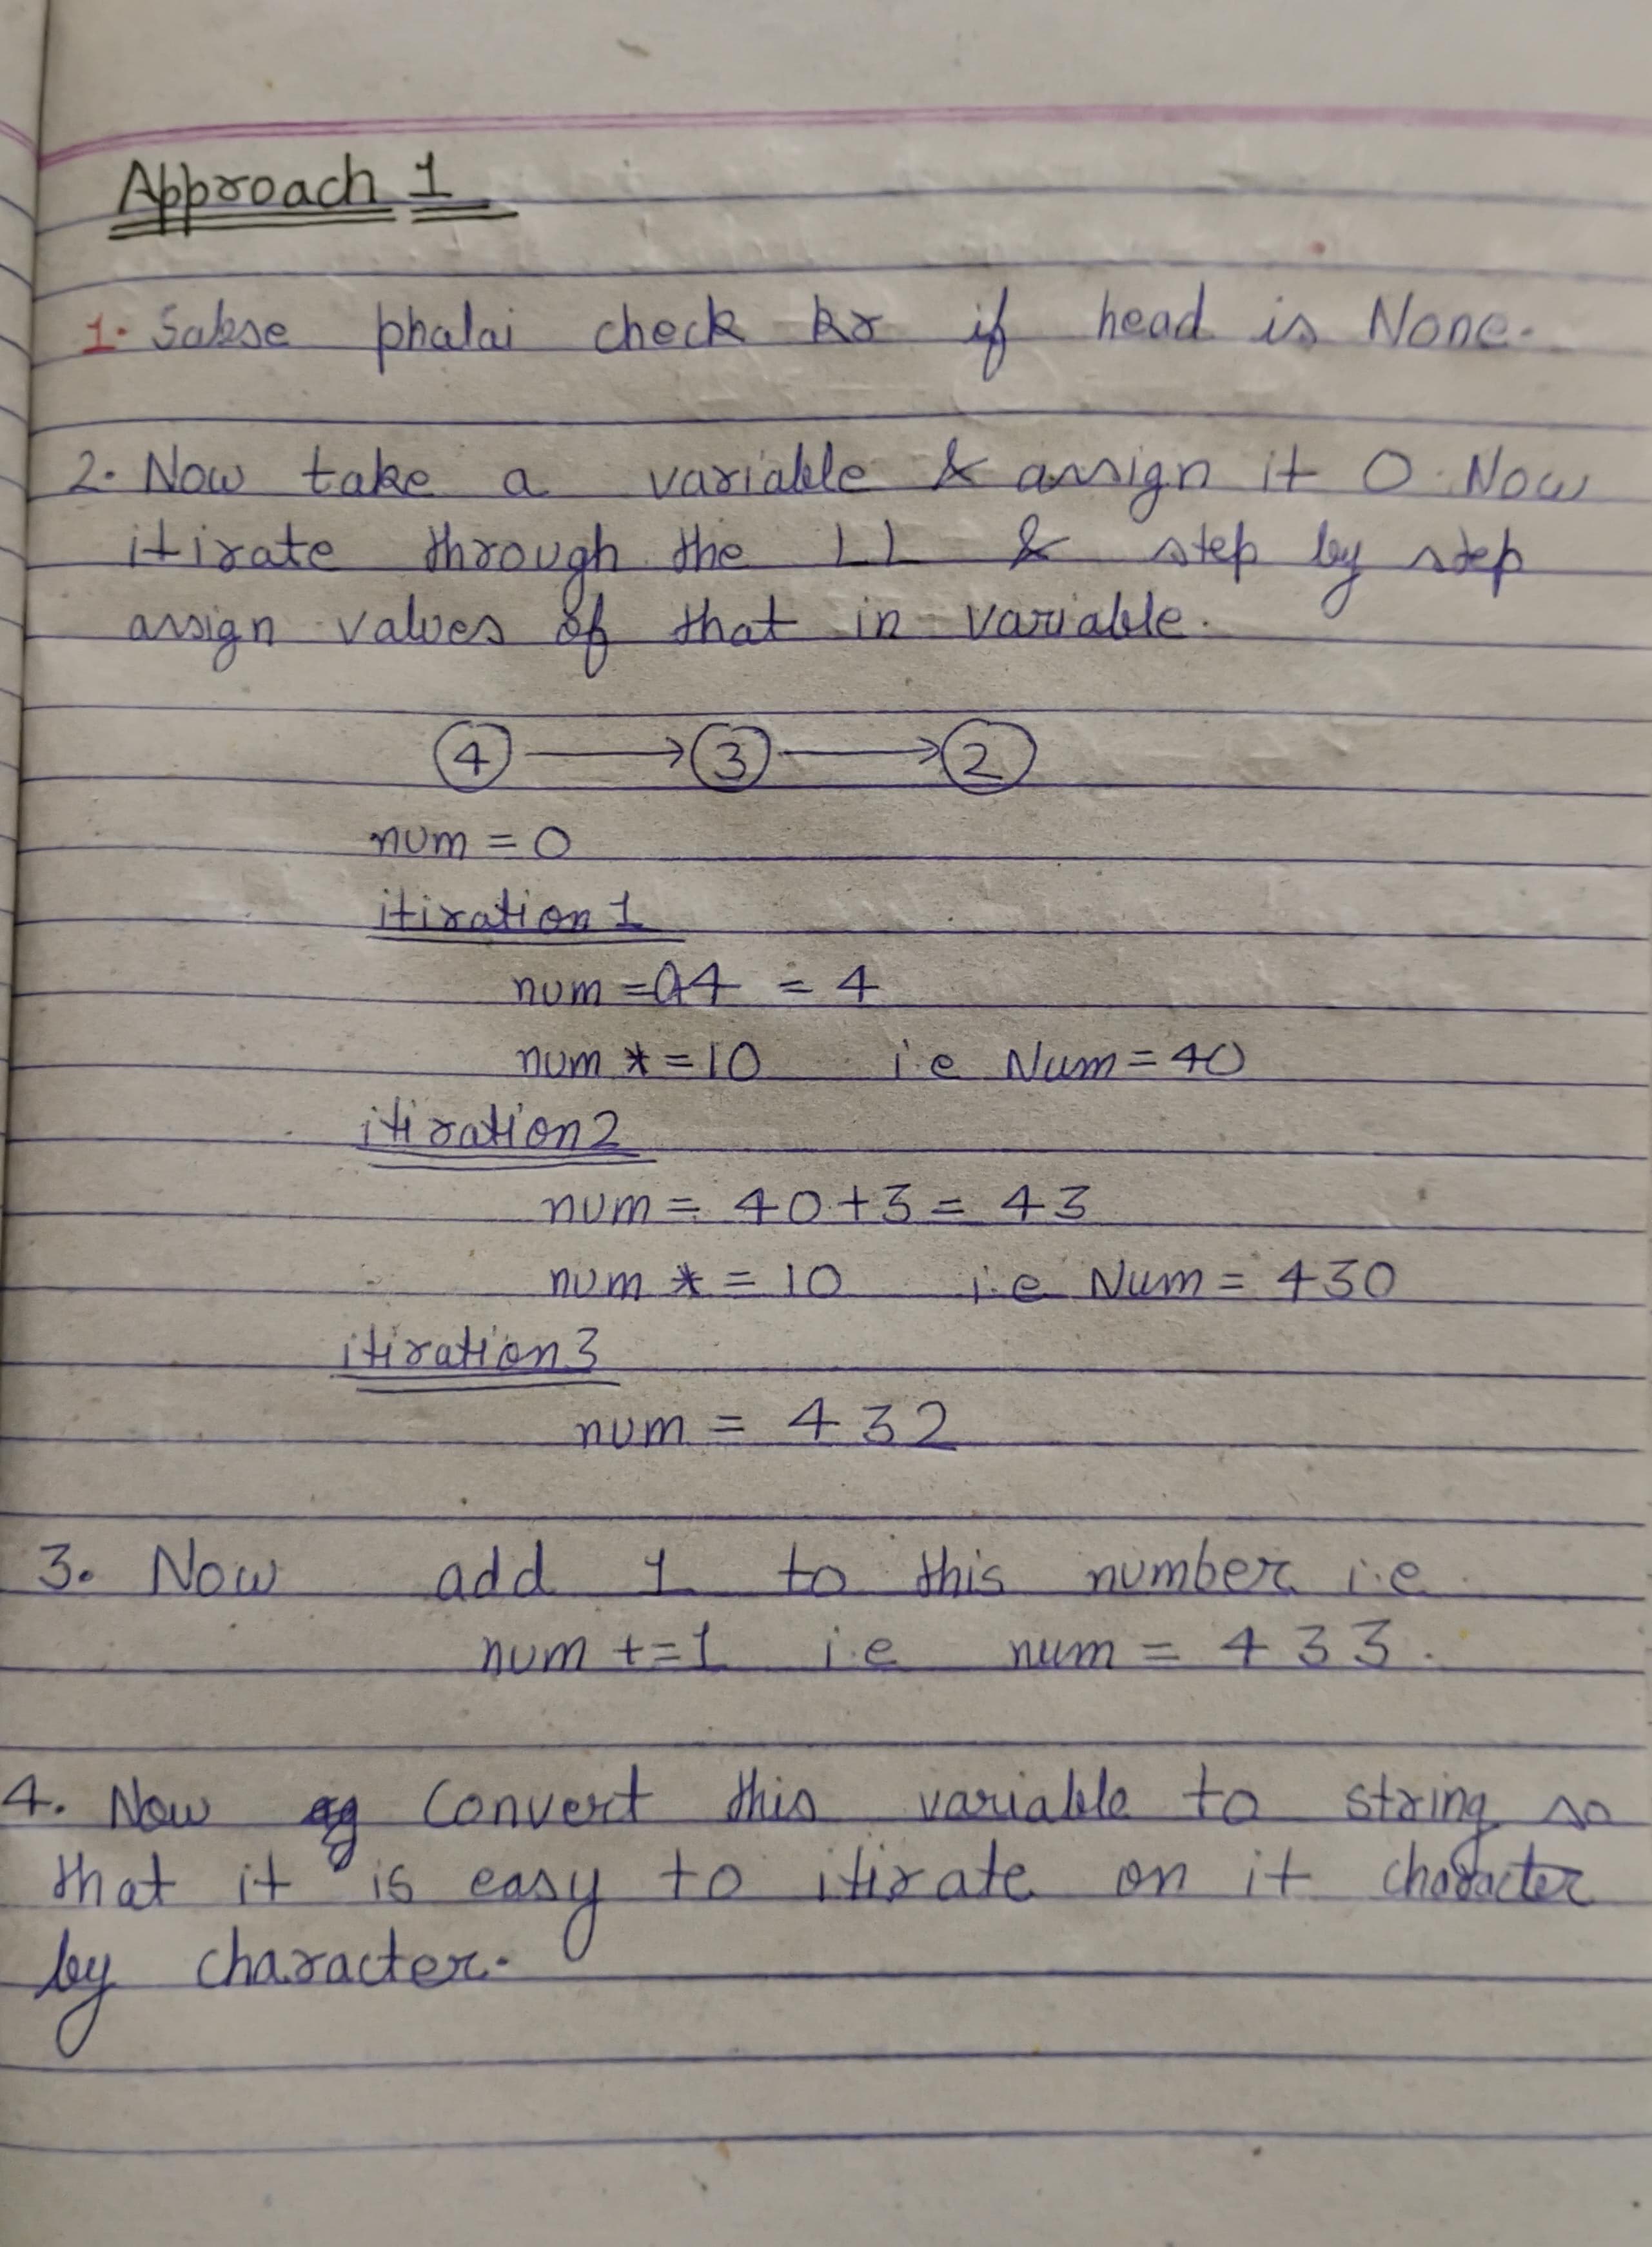 Approach 1
1. Sabse phalai check kr if head is None.
2. Now take a variable & assign it 0. Now
itirate through the LL & step by step
assign values of that in variable.
4 → 3 → 2
num = 0
itiration 1
num = 4 = 4
num *= 10 i.e Num = 40
itiration 2
num = 40 + 3 = 43
num *= 10 i.e Num = 430
itiration 3
num = 432
3. Now add 1 to this number i.e
num += 1 i.e num = 433.
4. Now convert this variable to string so
that it is easy to itirate on it character
by character.